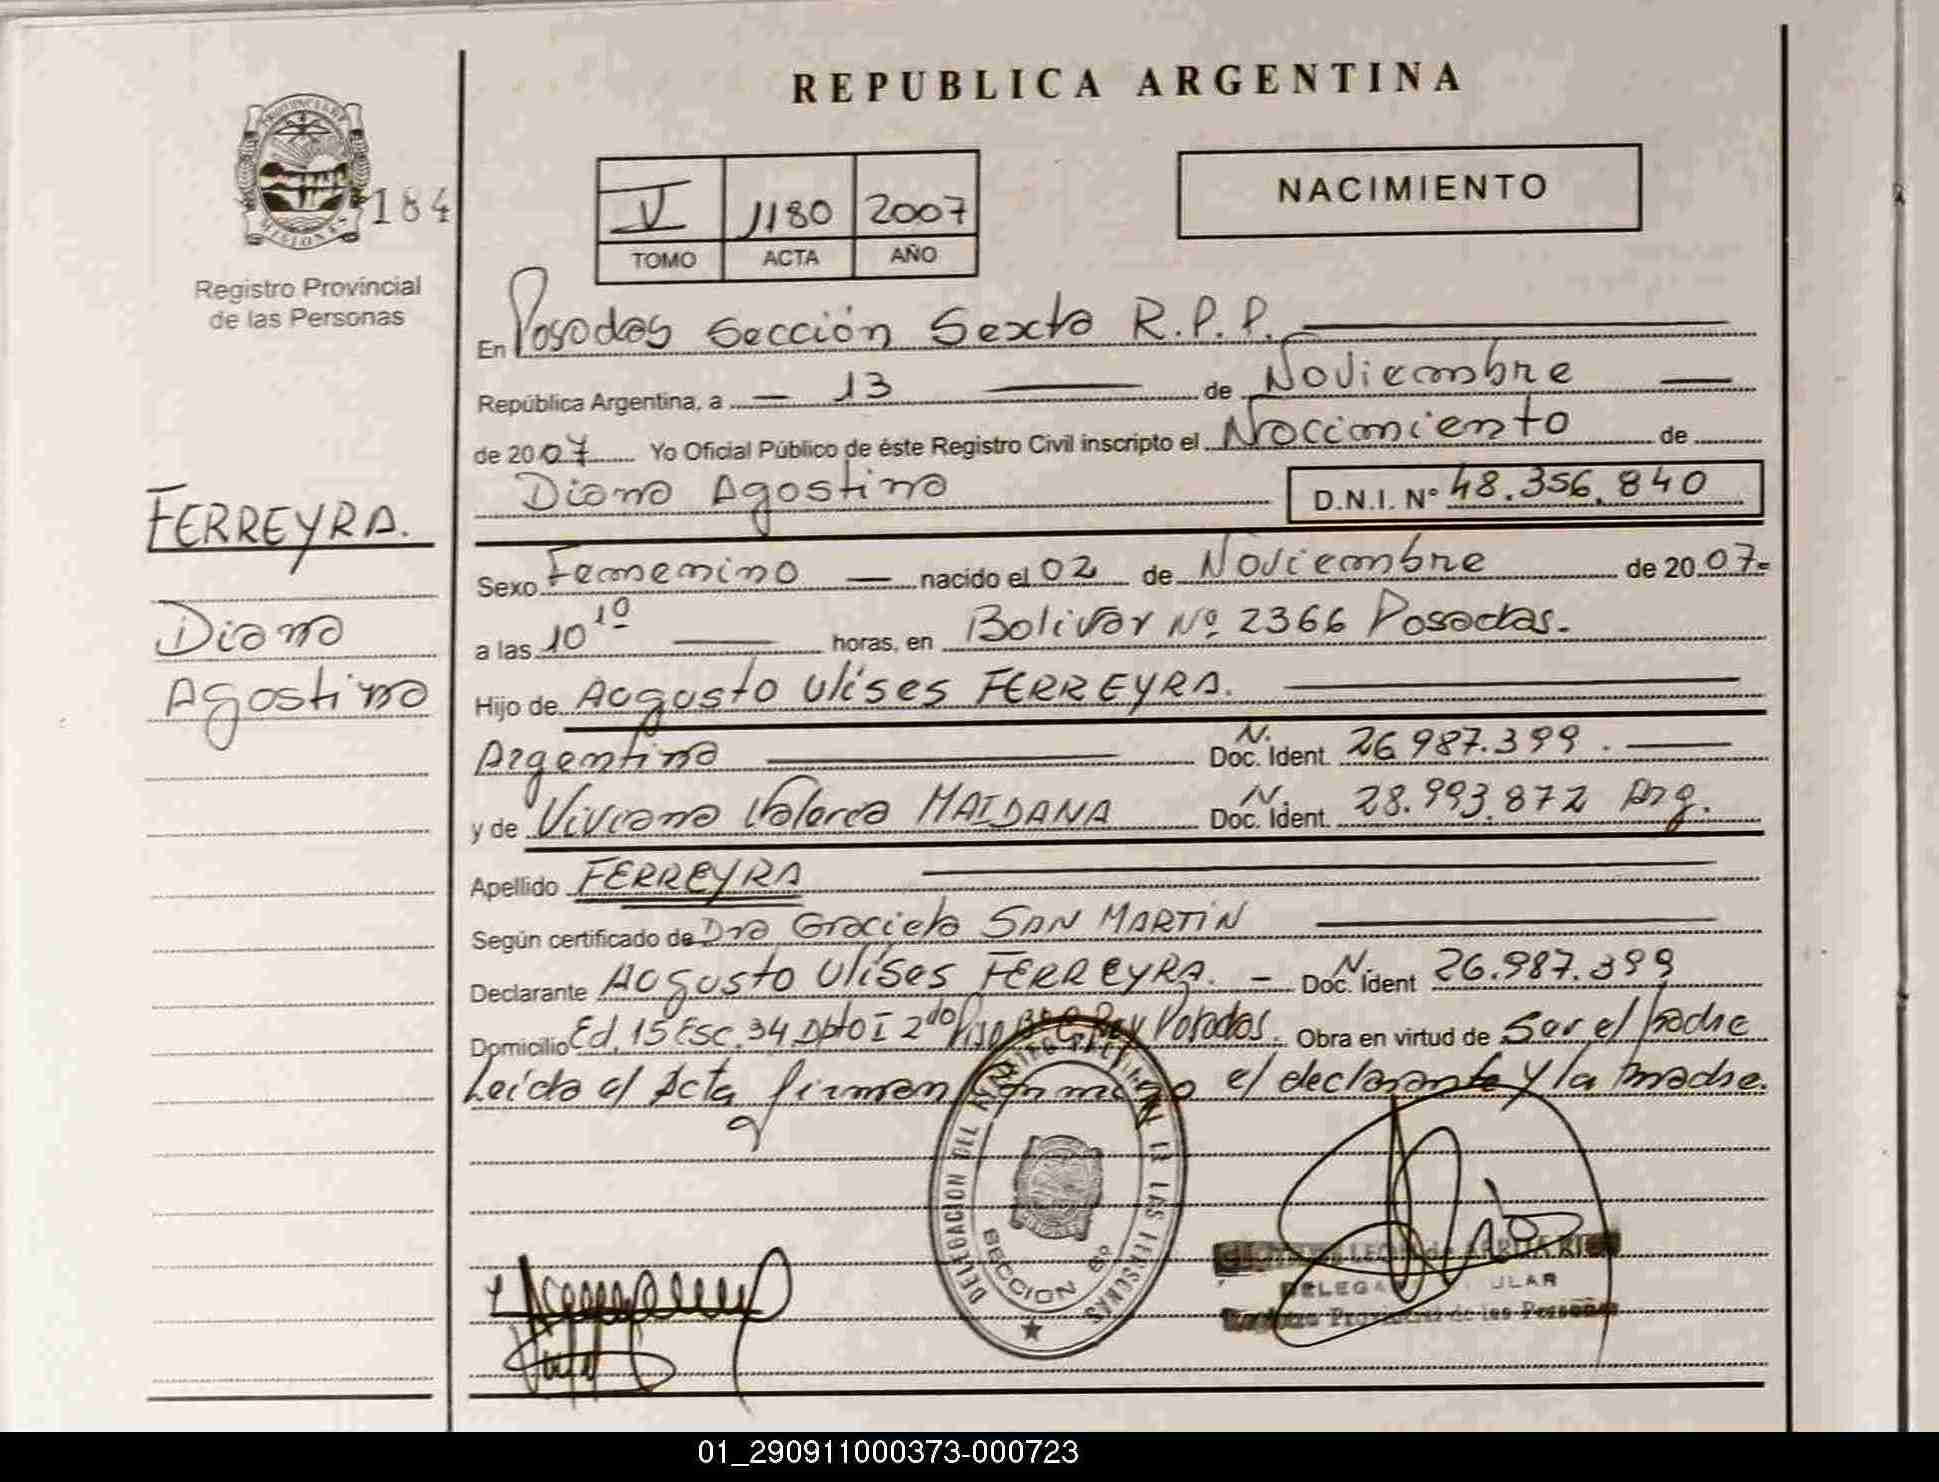 REPUBLICA ARGENTINA
PROVINCIA DE MISIONES
184
Registro Provincial
de las Personas
V 1180 2007
TOMO ACTA AÑO
NACIMIENTO
En Posadas Sección Sexta R.P.P.
República Argentina, a 13 de Noviembre
de 2007 Yo Oficial Público de éste Registro Civil inscripto el Nacimiento de
Diana Agostina D.N.I. Nº 48.356.840
FERREYRA.
Diana
Agostina
Sexo Femenino nacido el 02 de Noviembre de 2007
a las 10 10 horas, en Bolivar Nº 2366 Posadas.
Hijo de Augusto Ulises FERREYRA.
Argentina N. Doc. Ident. 26.987.399.
y de Viviana Valeria MAIDANA N. Doc. Ident. 28.993.872 Arg.
Apellido FERREYRA
Según certificado de Dra Graciela SAN MARTIN
Declarante Augusto Ulises FERREYRA. N. Doc. Ident 26.987.399
Domicilio Ed. 15 Esc. 34 Dpto I 2do Piso Posadas. Obra en virtud de Ser el padre
Leída el Acta firman conmigo el declarante y la madre.
DELEGACION DEL REGISTRO PROVINCIAL DE LAS PERSONAS
SECCION 6º
Registro Provincial de las Personas
01_290911000373-000723